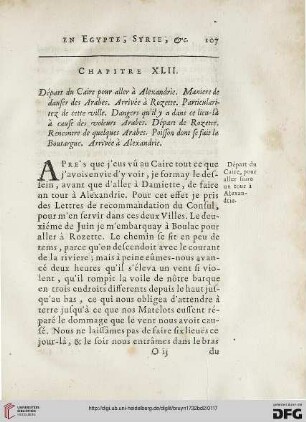 EN EGYPTE, SYRIE, &c. 107
CHAPITRE XLII.
Départ du Caire pour aller à Alexandrie. Maniere de
danser des Arabes. Arrivée à Rozette. Particulari-
tez de cette ville. Dangers qu'il y a dans ce lieu-là
à cause des voleurs Arabes. Départ de Rozette.
Rencontre de quelques Arabes. Poisson dont se fait la
Boutargue. Arrivée à Alexandrie.
APRE'S que j'eus vû au Caire tout ce que
j'avois envie d'y voir, je formay le des-
sein, avant que d'aller à Damiette, de faire
un tour à Alexandrie. Pour cet effet je pris
des Lettres de recommandation du Consul,
pour m'en servir dans ces deux Villes. Le deu-
xiéme de Juin je m'embarquay à Boulac pour
aller à Rozette. Le chemin se fit en peu de
tems, parce qu'on descendoit avec le courant
de la riviere; mais à peine eûmes-nous avan-
cé deux heures qu'il s'éleva un vent si vio-
lent, qu'il rompit la voile de nôtre barque
en trois endroits differents depuis le haut jus-
qu'au bas, ce qui nous obligea d'attendre à
terre jusqu'à ce que nos Matelots eussent ré-
paré le dommage que le vent nous avoit cau-
sé. Nous ne laissâmes pas de faire six lieües ce
jour-là, & le soir nous entrâmes dans le bras
O ij du
Départ du
Caire, pour
aller faire
un tour à
Alexan-
drie.
http://digi.ub.uni-heidelberg.de/diglit/bruyn1732bd2/0117
© Universitätsbibliothek Heidelberg
gefördert durch die
DFG